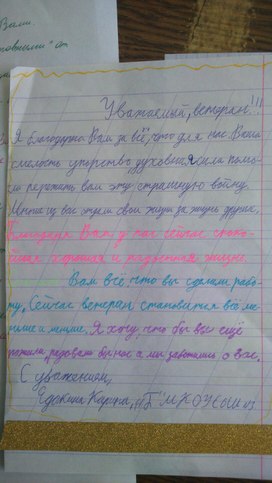 Вами
Уважаемый, ветеран!!!
Я благодарна Вам за всё, что для нас Ваша
смелость упорство духовная сила помог
ли пережить вам эту страшную войну.
Многие из вас отдали свои жизни за жизнь других.
Благодаря Вам у нас сейчас споко-
йная хорошая и радостная жизнь.
Вам всё, что вы сделали
ту. Сейчас ветеранов становится всё ме-
ньше и меньше. Я хочу, что бы вы ещё
пожили, радовали бы нас, а мы заботились о вас.
С уважением,
Карина,